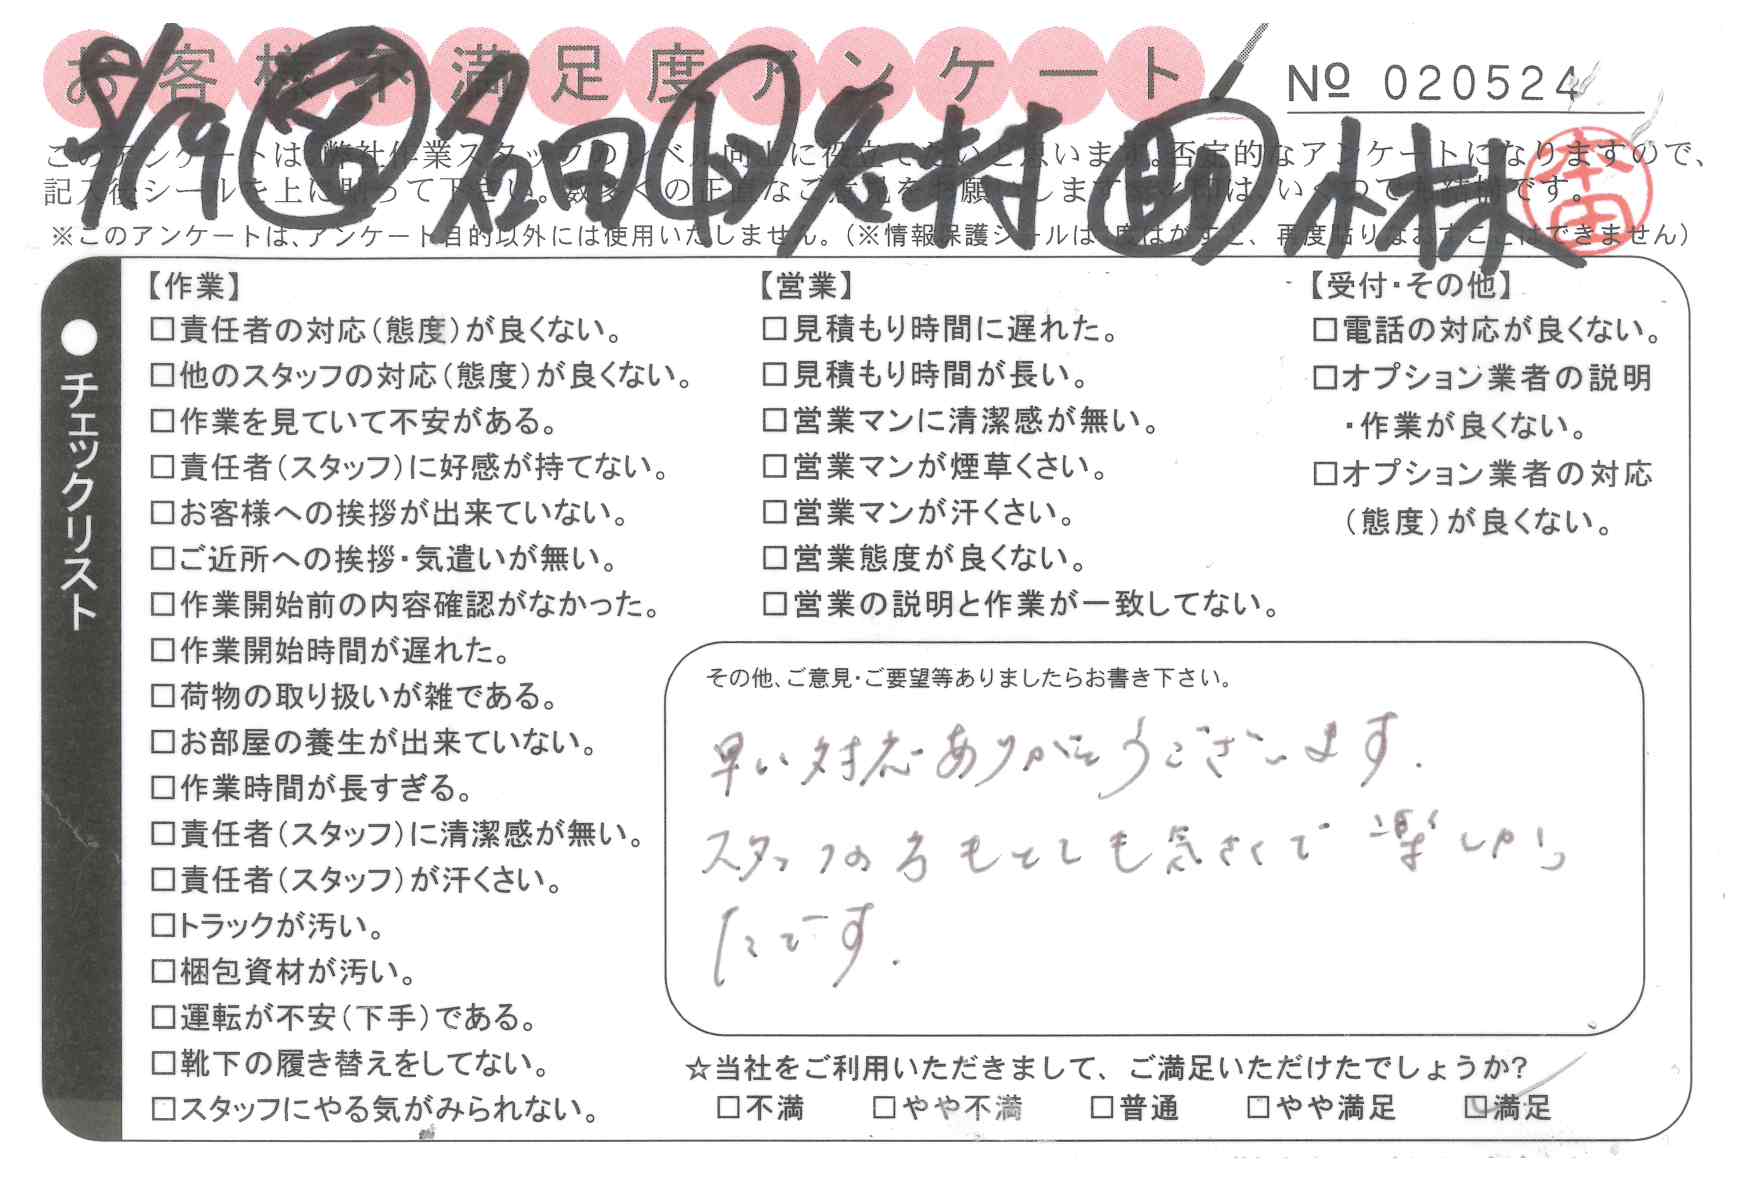 お客様不満足度アンケート
№ 020524
8/19 営 名田 自 谷村 小林
本田
このアンケートは、弊社作業スタッフのレベル向上に役立てたいと思います。否定的なアンケートになりますので、
記入後シールを上に貼って下さい。数多くの正直なご意見をお願いします
は、いくつでも結構です。
※このアンケートは、アンケート目的以外には使用いたしません。（※情報保護シールは1度はがすと、再度貼りなおすことはできません）
●チェックリスト
【作業】
□責任者の対応（態度）が良くない。
□他のスタッフの対応（態度）が良くない。
□作業を見ていて不安がある。
□責任者（スタッフ）に好感が持てない。
□お客様への挨拶が出来ていない。
□ご近所への挨拶・気遣いが無い。
□作業開始前の内容確認がなかった。
□作業開始時間が遅れた。
□荷物の取り扱いが雑である。
□お部屋の養生が出来ていない。
□作業時間が長すぎる。
□責任者（スタッフ）に清潔感が無い。
□責任者（スタッフ）が汗くさい。
□トラックが汚い。
□梱包資材が汚い。
□運転が不安（下手）である。
□靴下の履き替えをしてない。
□スタッフにやる気がみられない。
【営業】
□見積もり時間に遅れた。
□見積もり時間が長い。
□営業マンに清潔感が無い。
□営業マンが煙草くさい。
□営業マンが汗くさい。
□営業態度が良くない。
□営業の説明と作業が一致してない。
【受付・その他】
□電話の対応が良くない。
□オプション業者の説明
・作業が良くない。
□オプション業者の対応
（態度）が良くない。
その他、ご意見・ご要望等ありましたらお書き下さい。
早い対応ありがとうございます.
スタッフの方もとても気さくで楽しかっ
たです.
☆当社をご利用いただきまして、ご満足いただけたでしょうか?
□不満 □やや不満 □普通 □やや満足 □満足